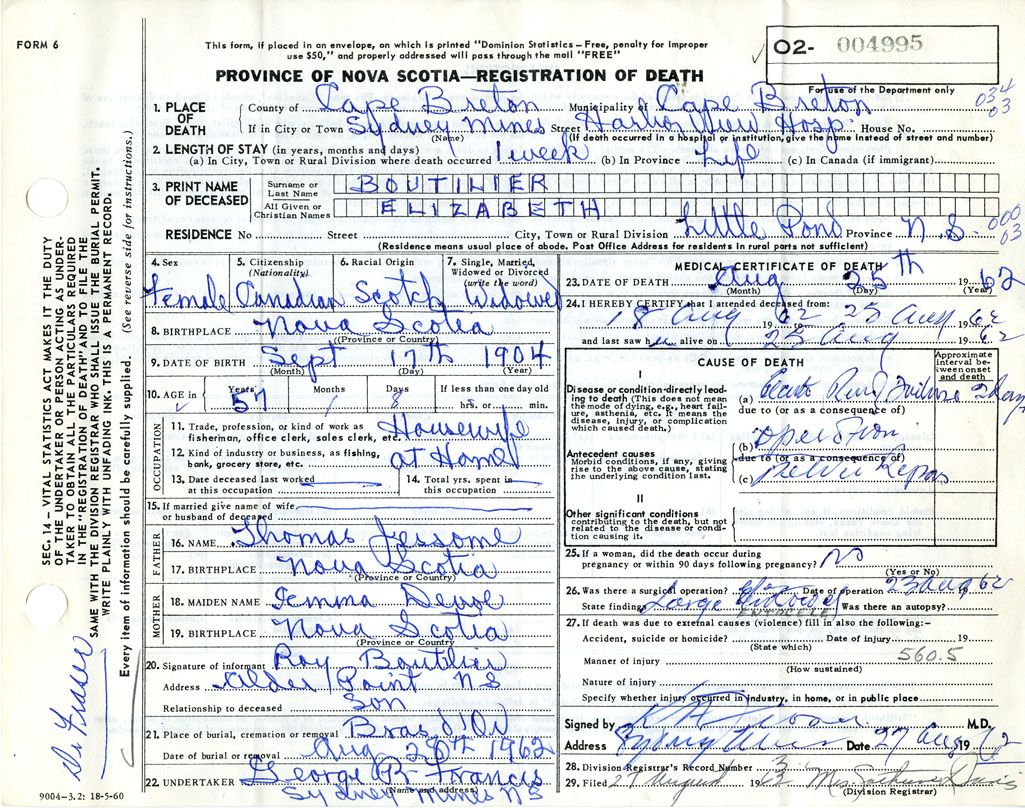 FORM 6
This form, if placed in an envelope, on which is printed "Dominion Statistics – Free, penalty for improper
use $50," and properly addressed will pass through the mail "FREE"
PROVINCE OF NOVA SCOTIA—REGISTRATION OF DEATH
O2- 004995
For use of the Department only
034
03
SEC. 14 – VITAL STATISTICS ACT MAKES IT THE DUTY
OF THE UNDERTAKER OR PERSON ACTING AS UNDER-
TAKER TO OBTAIN ALL THE PARTICULARS REQUIRED
IN THE "REGISTRATION OF DEATH" AND TO FILE THE
SAME WITH THE DIVISION REGISTRAR WHO SHALL ISSUE THE BURIAL PERMIT.
WRITE PLAINLY WITH UNFADING INK. THIS IS A PERMANENT RECORD.
Every item of information should be carefully supplied. (See reverse side for instructions.)
Dr Fraser
1. PLACE OF DEATH
County of Cape Breton Municipality of Cape Breton
If in City or Town Sydney Mines Street Harbor View Hosp. House No.
(Name) (If death occurred in a hospital or institution, give name instead of street and number)
2. LENGTH OF STAY (in years, months and days)
(a) In City, Town or Rural Division where death occurred 1 week (b) In Province Life (c) In Canada (if immigrant)
3. PRINT NAME OF DECEASED
Surname or Last Name BOUTILIER
All Given or Christian Names ELIZABETH
RESIDENCE No Street City, Town or Rural Division Little Pond Province N.S.
000
03
(Residence means usual place of abode. Post Office Address for residents in rural parts not sufficient)
4. Sex 5. Citizenship (Nationality) 6. Racial Origin 7. Single, Married, Widowed or Divorced (write the word)
Female Canadian Scotch Widowed
8. BIRTHPLACE Nova Scotia
(Province or Country)
9. DATE OF BIRTH Sept 17th 1904
(Month) (Day) (Year)
10. AGE in Years Months Days If less than one day old
57 1 8 hrs. or min.
OCCUPATION
11. Trade, profession, or kind of work as fisherman, office clerk, sales clerk, etc. Housewife
12. Kind of industry or business, as fishing, bank, grocery store, etc. at Home
13. Date deceased last worked at this occupation
14. Total yrs. spent in this occupation
15. If married give name of wife or husband of deceased
FATHER
16. NAME Thomas Jessome
17. BIRTHPLACE Nova Scotia
(Province or Country)
MOTHER
18. MAIDEN NAME
19. BIRTHPLACE Nova Scotia
(Province or Country)
20. Signature of informant Roy Boutilier
Address Alder Point NS
Relationship to deceased Son
21. Place of burial, cremation or removal Bras d'Or
Date of burial or removal Aug 28th 1962
22. UNDERTAKER George R Francis
(Name and address)
Sydney Mines NS
9004-3.2: 18-5-60
MEDICAL CERTIFICATE OF DEATH
23. DATE OF DEATH Aug 25th 1962
(Month) (Day) (Year)
24. I HEREBY CERTIFY that I attended deceased from:
18 Aug 1962 25 Aug 1962
and last saw alive on 25 Aug 1962
CAUSE OF DEATH
Approximate interval between onset and death
I
Disease or condition directly leading to death (This does not mean the mode of dying, e.g., heart failure, asthenia, etc. It means the disease, injury, or complication which caused death.)
(a) Renal Failure 2 days
due to (or as a consequence of)
Antecedent causes
Morbid conditions, if any, giving rise to the above cause, stating the underlying condition last.
(b) operation
due to (or as a consequence of)
(c)
II
Other significant conditions contributing to the death, but not related to the disease or condition causing it.
25. If a woman, did the death occur during pregnancy or within 90 days following pregnancy? No
(Yes or No)
26. Was there a surgical operation? Yes Date of operation 23 Aug 1962
State findings Large ENTOCELE Was there an autopsy?
27. If death was due to external causes (violence) fill in also the following:–
Accident, suicide or homicide? Date of injury 19
(State which)
560.5
Manner of injury
(How sustained)
Nature of injury
Specify whether injury occurred in industry, in home, or in public place
Signed by M.D.
Address Sydney Mines Date 27 Aug 1962
28. Division Registrar's Record Number 3
29. Filed 27 August 1962
(Division Registrar)